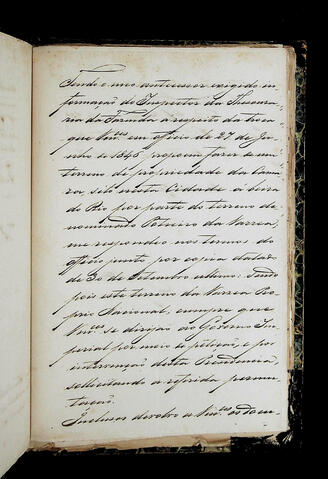 Tendo o meu antecessor exigido in-
formação do Inspector da Thesoura-
ria da Fazenda a respeito da troca
que Vm.ces em officio de 27 de Ju-
nho de 1846 propoem fazer de um
terreno de propriedade da Cama-
ra, sito nesta Cidade á beira
do Rio por parte do terreno de-
nominado Potreiro da Varzea,
me respondeo nos termos do
officio junto por copia datado
de 30 de Setembro ultimo. Sendo
pois este terreno da Varzea Pro-
prio Nacional, cumpre que
Vm.ces se dirijão ao Governo Im-
perial por meio de petição, e por
intervenção desta Presidencia,
sollicitando a referida permu-
tação.
Inclusos devolvo a Vm.ces os docu-